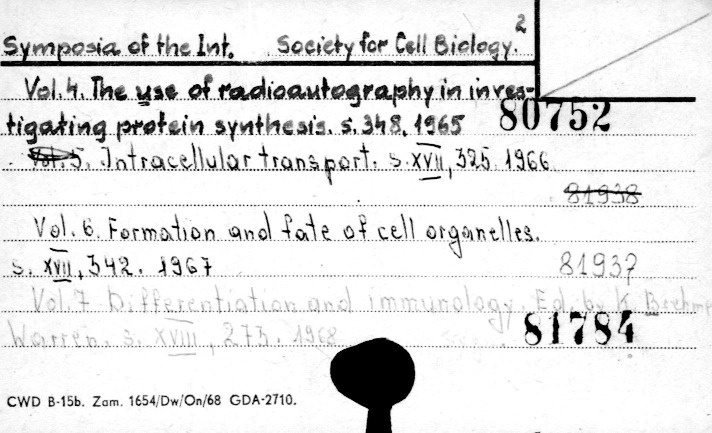 2
Symposia of the Int. Society for Cell Biology.
Vol. 4. The use of radioautography in inves-
tigating protein synthesis. s. 348. 1965 80752
Vol. 5. Intracellular transport. s. XVII, 325. 1966
81938
Vol. 6. Formation and fate of cell organelles.
s. XVII, 342. 1967 81937
Vol. 7 Differentiation and immunology. Ed. by K. Brehme
Warren. s. XVIII, 273. 1968 81784
CWD B-15b. Zam. 1654/Dw/On/68 GDA-2710.